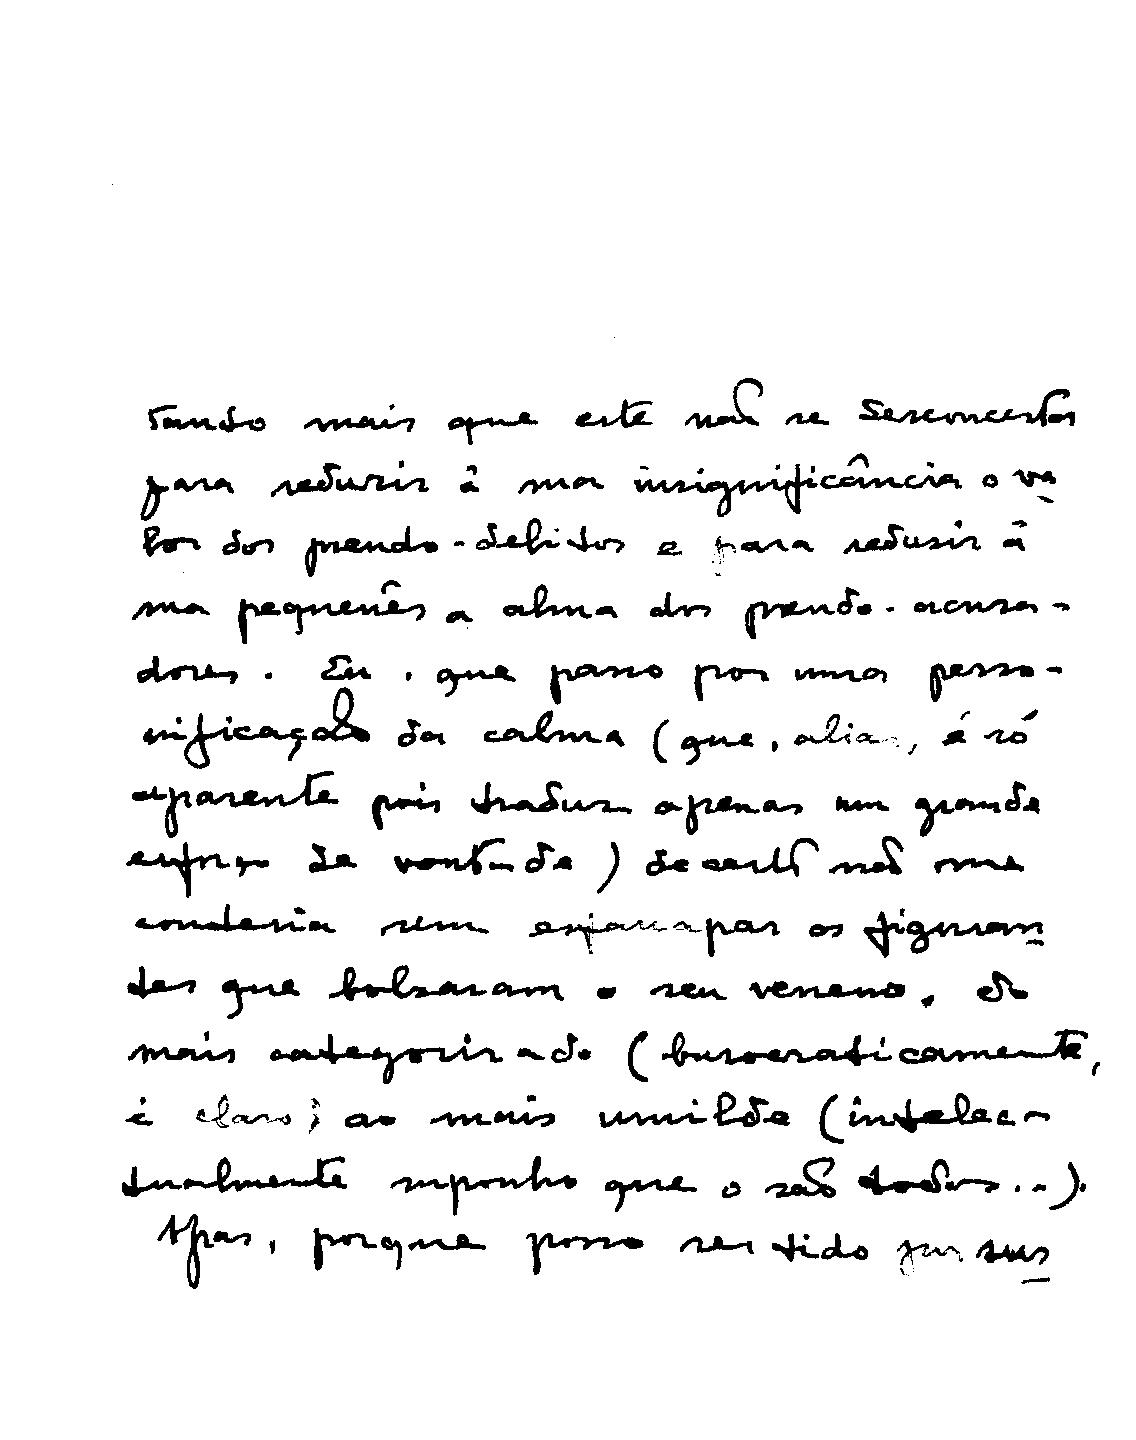 tanto mais que este não se desconcertas
para reduzir â sua insignificância o va
lor dos pseudo-delitos e para reduzir â
sua pequenês a alma dos pseudo-acusa-
dores. Eu, que passo por uma perso-
nificação da calma (que, alias, é só
aparente pois traduz apenas um grande
esforço de vontade) decerto não me
conteria sem esfarrapar os figuran
tes que bolsaram o seu veneno, do
mais categorizado (burocraticamente,
é claro) ao mais umilde (intelec-
tualmente suponho que o são todos...).
Mas, porque posso ser tido por sus